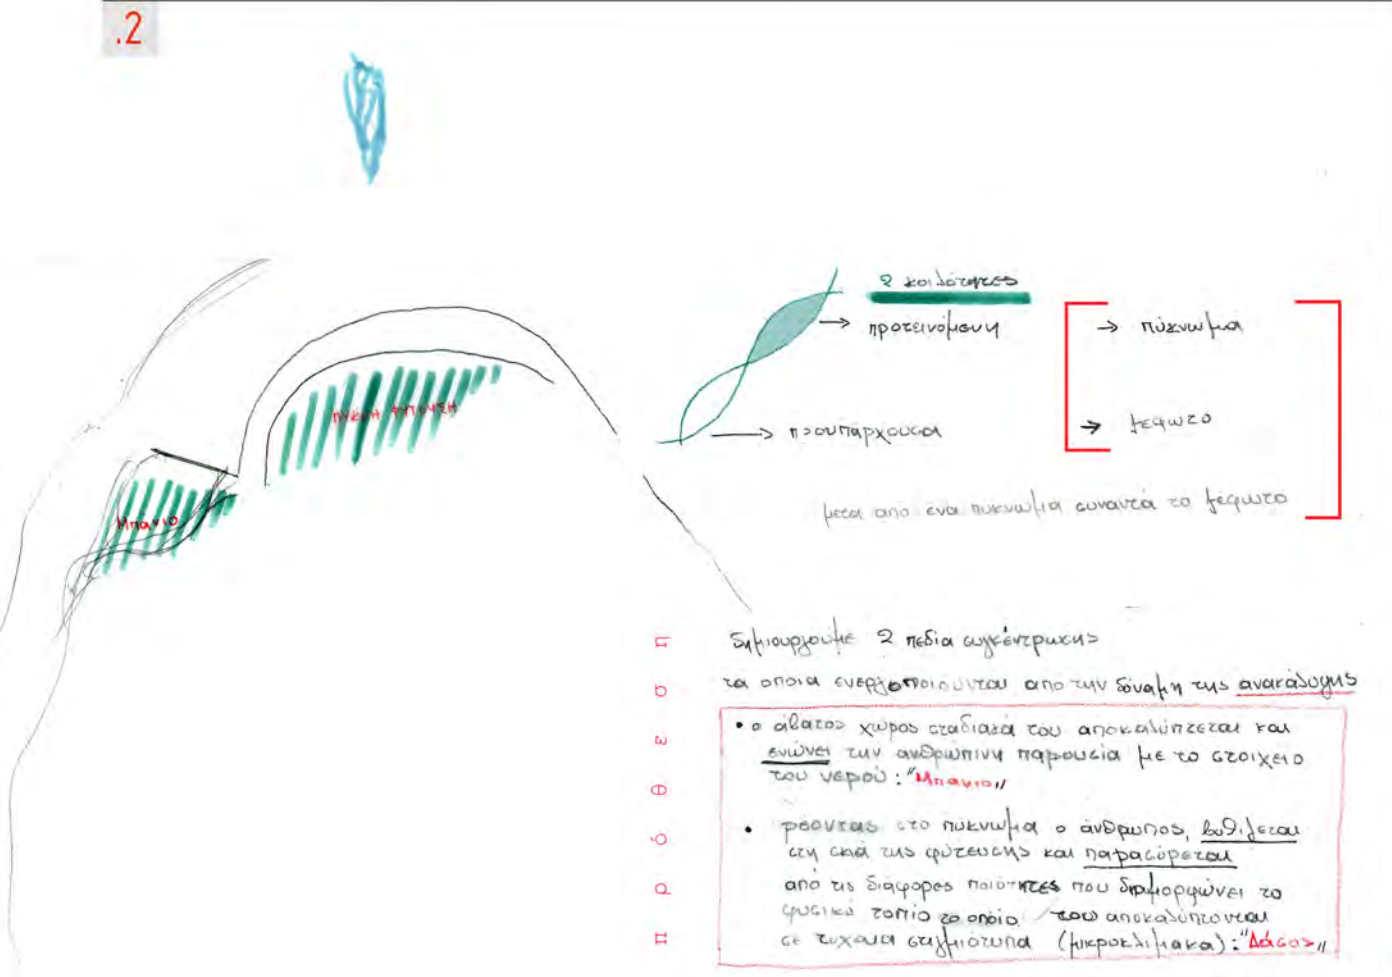 .2
2 κοιλότητες
προτεινόμενη
→ πύκνωμα
ΠΥΚΝΗ ΦΥΤΕΥΣΗ
προυπάρχουσα
→ ξέφωτο
Μπάνιο
μετα απο ενα πυκνωμα συναντά το ξέφωτο
δημιουργούμε 2 πεδία συγκέντρωσης
τα οποια ενεργοποιουνται απο την δύναμη της ανακάλυψης
• ο άβατος χώρος σταδιακά του αποκαλύπτεται και
ενώνει την ανθρώπινη παρουσία με το στοιχείο
του νερού: "Μπανιο"
• ρέοντας στο πυκνωμα ο άνθρωπος, βυθιζεται
στη σκιά της φύτευσης και παρασύρεται
από τις διάφορες ποιότητες που διαμορφώνει το
φυσικό τοπίο το οποίο του αποκαλύπτονται
σε τυχαια στιγμιότυπα (μικροκλιμακα): "Δάσος"